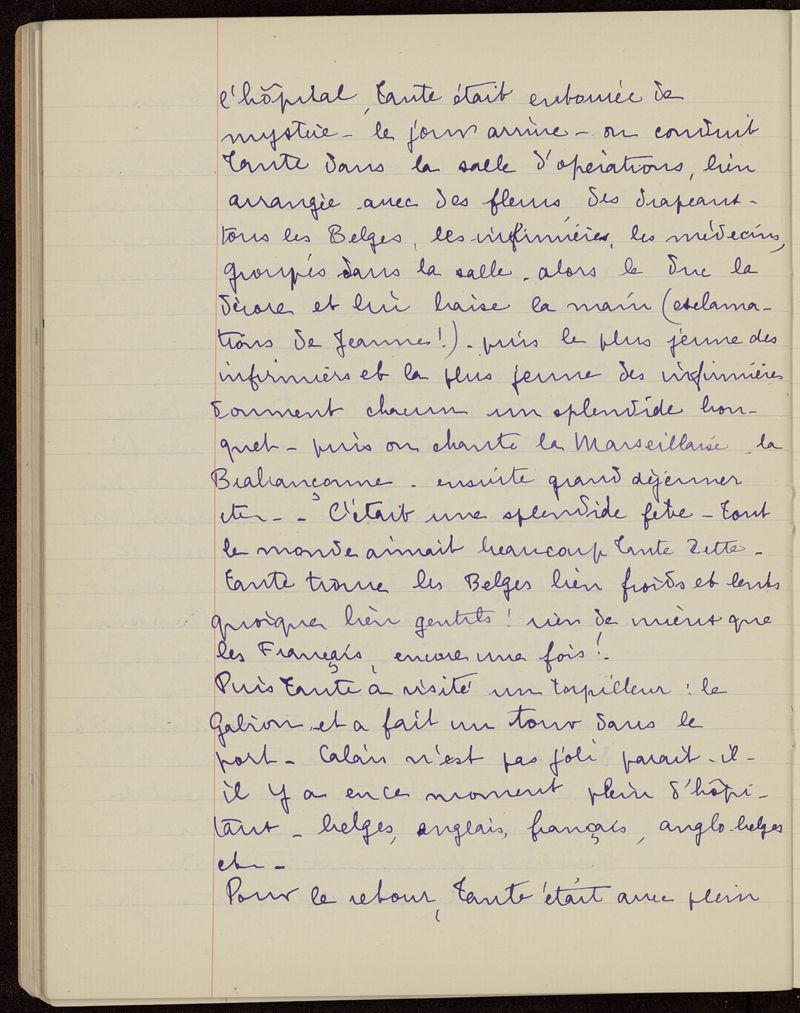 l'hôpital, Tante était entourée de
mystère - le jour arrive - on conduit
Tante dans la salle d'opérations, bien
arrangée avec des fleurs des drapeaux -
tous les Belges, les infirmières, les médecins,
groupés dans la salle - alors le duc la
décore et lui baise la main (exclama-
tions de Jeanne!) - puis le plus jeune des
infirmiers et la plus jeune des infirmières
donnent chacun un splendide bou-
quet - puis on chante la Marseillaise - la
Brabançonne - ensuite grand déjeuner
etc - - C'était une splendide fête - Tout
le monde aimait beaucoup Tante Zette -
Tante trouve les Belges bien froids et lents
quoique bien gentils! rien de mieux que
les Français, encore une fois! -
Puis Tante a visité un torpilleur : le
Galion et a fait un tour dans le
port - Calais n'est pas joli parait-il -
il y a en ce moment plein d'hôpi-
taux - belges, anglais, français, anglo-belges
etc -
Pour le retour, Tante était avec plein